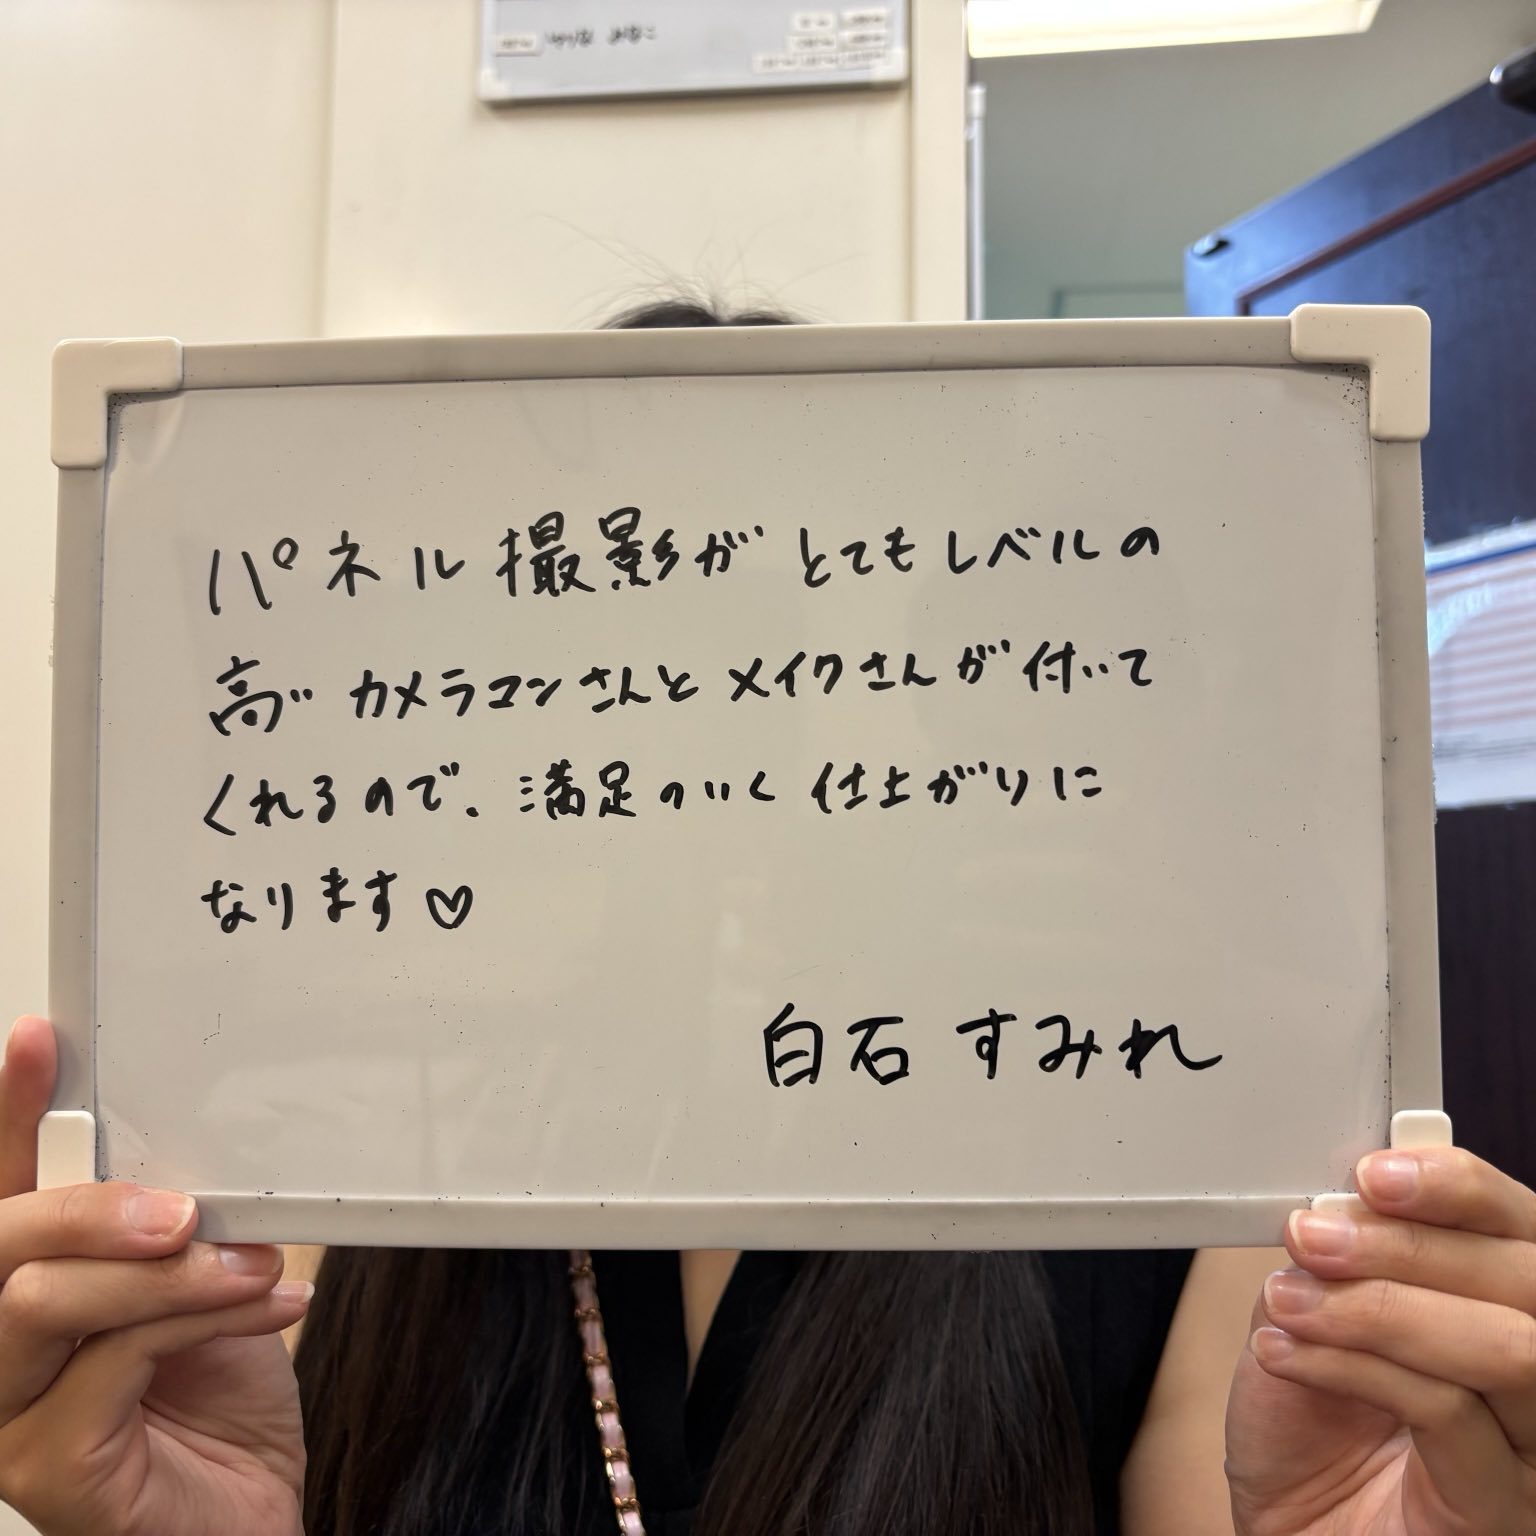 パネル撮影がとてもレベルの
高いカメラマンさんとメイクさんが付いて
くれるので、満足のいく仕上がりに
なります♡
白石 すみれ